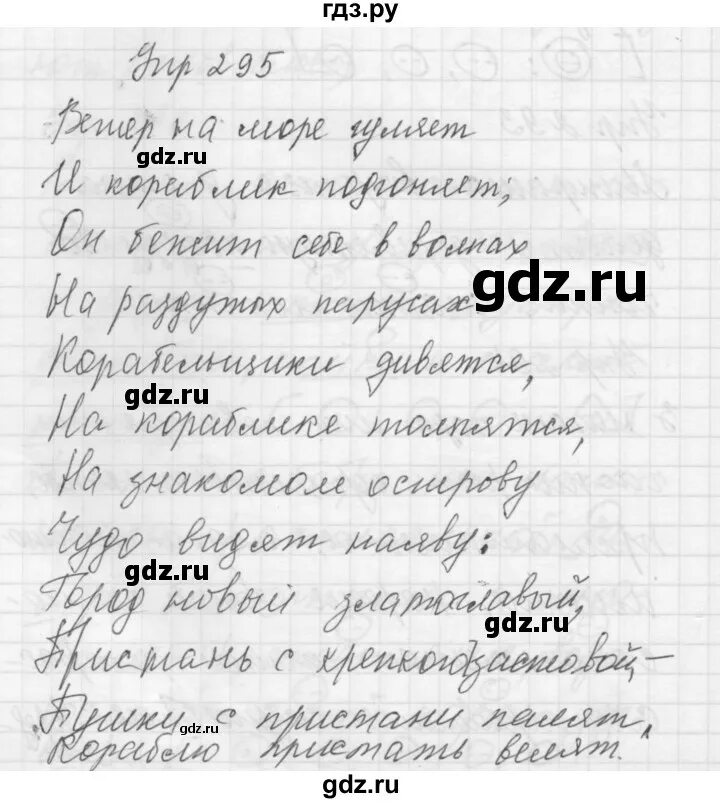 гдз.ру
Упр 295
Ветер на море гуляет
gdz.ru
И кораблик подгоняет;
Он бежит себе в волнах
gdz.ru
На раздутых парусах
Корабельщики дивятся,
gdz.ru
На кораблике толпятся,
На знакомом острову
Чудо видят наяву:
gdz.ru
Город новый златоглавый,
gdz.ru
Пристань с крепкою заставой –
Пушки с пристани палят,
Кораблю пристать велят.
gdz.ru